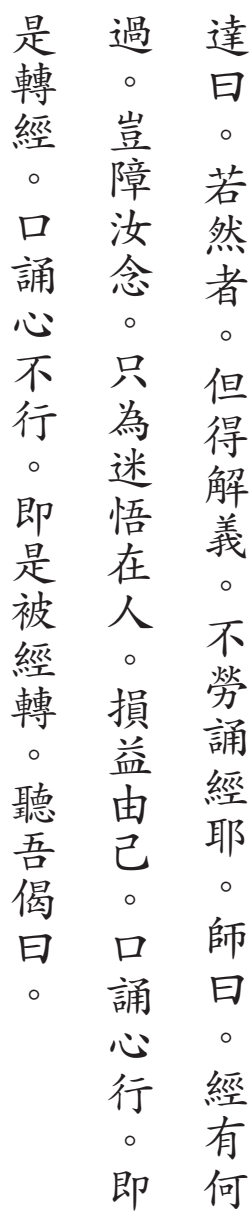 達曰。若然者。但得解義。不勞誦經耶。師曰。經有何
過。豈障汝念。只為迷悟在人。損益由己。口誦心行。即
是轉經。口誦心不行。即是被經轉。聽吾偈曰。